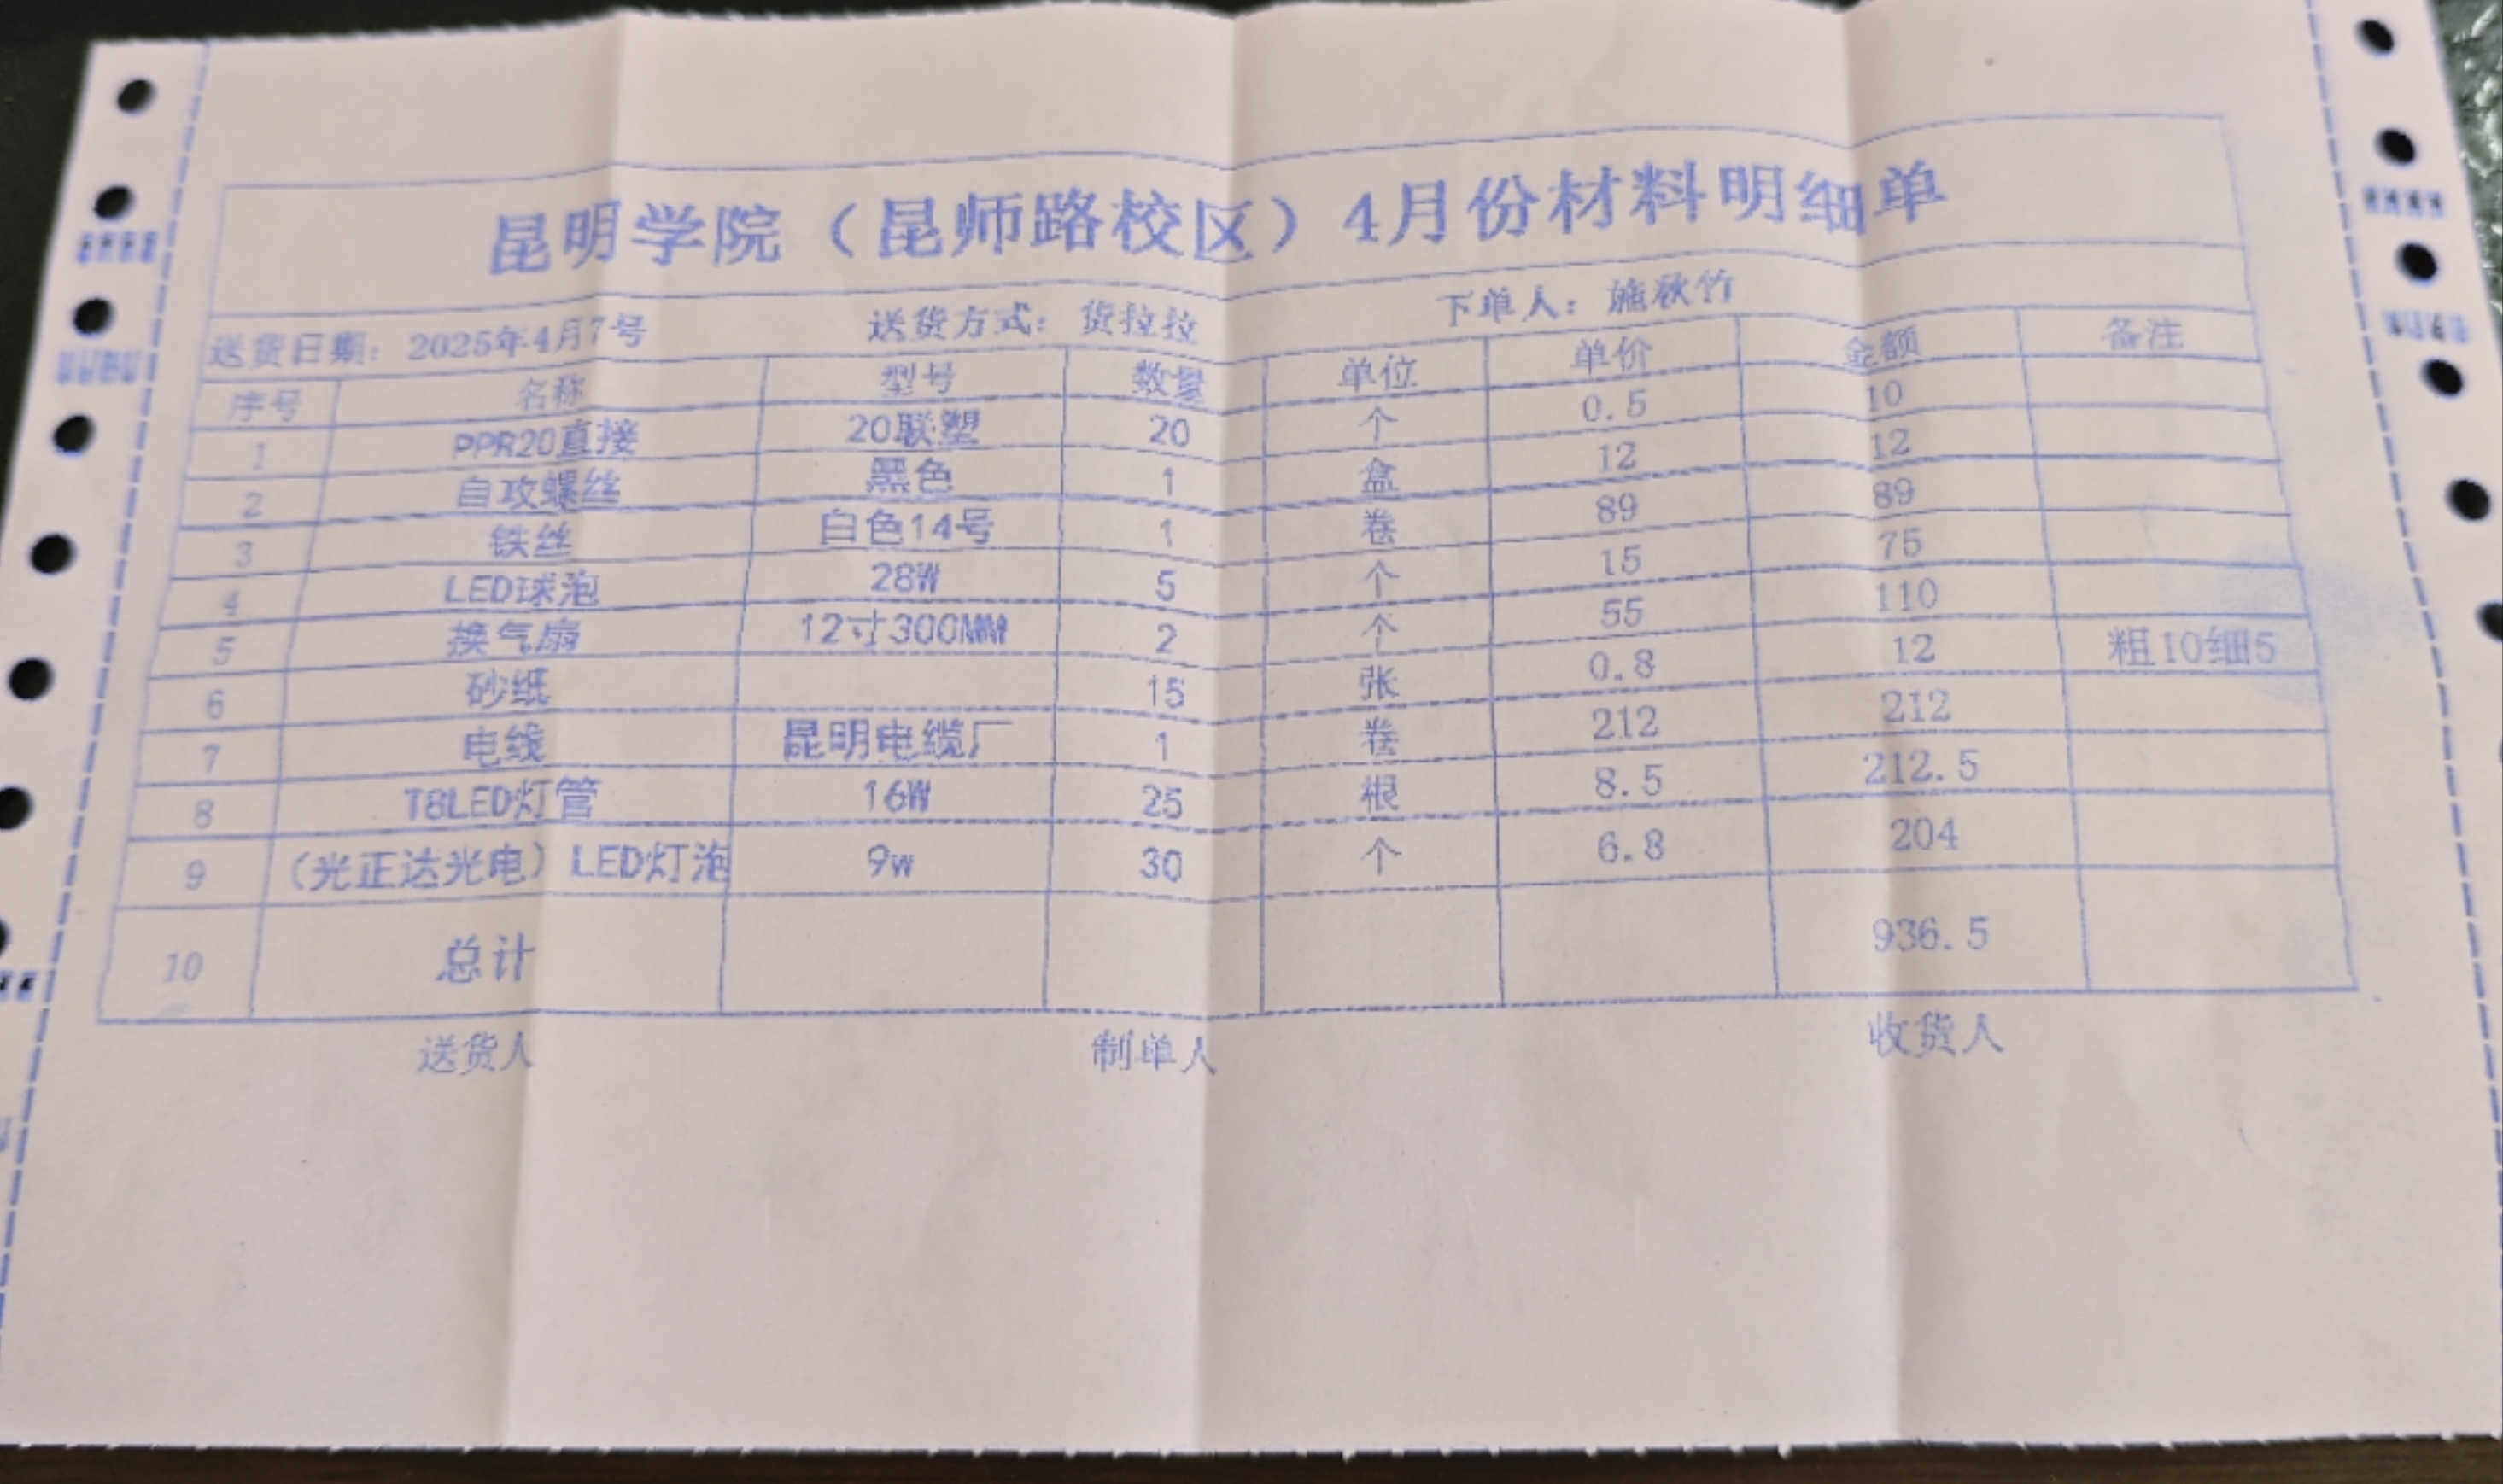 昆明学院（昆师路校区）4月份材料明细单
送货日期：2025年4月7号 送货方式：货拉拉 下单人：施秋竹
序号 名称 型号 数量 单位 单价 金额 备注
1 PPR20直接 20联塑 20 个 0.5 10
2 自攻螺丝 黑色 1 盒 12 12
3 铁丝 白色14号 1 卷 89 89
4 LED球泡 28W 5 个 15 75
5 换气扇 12寸300MM 2 个 55 110
6 砂纸 15 张 0.8 12 粗10细5
7 电线 昆明电缆厂 1 卷 212 212
8 T8LED灯管 16W 25 根 8.5 212.5
9 （光正达光电）LED灯泡 9w 30 个 6.8 204
10 总计 936.5
送货人 制单人 收货人